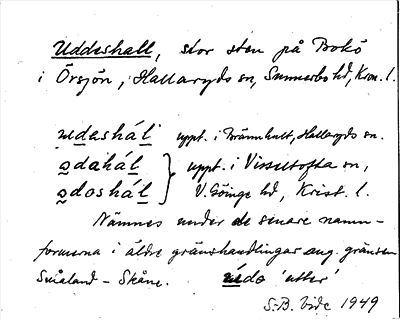 Uddeshall, stor sten på Bokö
i Örsjön, Hallaryds sn, Sunnerbo hd, Kron. l.
udeshál uppt. i Brännhult, Hallaryds sn.
odahál } uppt. i Visseltofta sn,
odoshál V. Göinge hd, Krist. l.
Nämnes under de senare namn-
formerna i äldre gränshandlingar ang. gränsen
Småland - Skåne. údo 'utter'
S.-B. Vide 1949